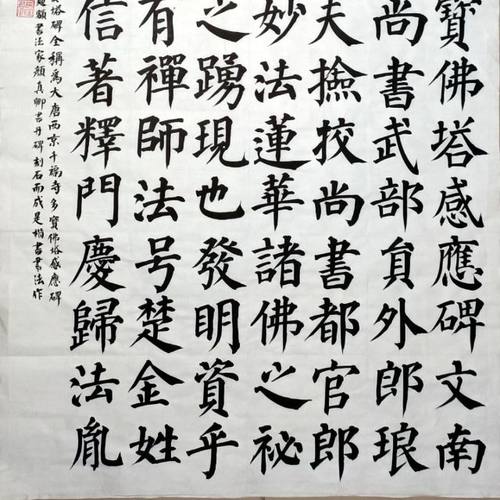 寶佛塔感應碑文南
尚書武部員外郎琅
夫撿挍尚書都官郎
妙法蓮華諸佛之祕
之踴現也發明資乎
有禪師法号楚金姓
信著釋門慶歸法胤
塔碑全稱爲大唐西京千福寺多寶佛塔感應碑
額書法家顏真卿書丹碑刻石而成是楷書書法作